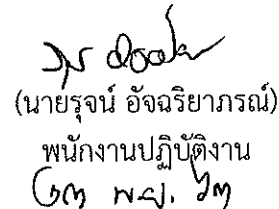 (นายรุจน์ อัจฉริยาภรณ์)
พนักงานปฏิบัติงาน
พ.ย.